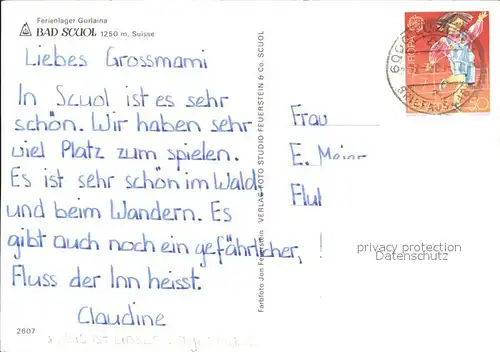 Ferienlager Gurlaina
BAD SCUOL 1250 m, Suisse
Liebes Grossmami
In Scuol ist es sehr
schön. Wir haben sehr
viel Platz zum spielen.
Es ist sehr schön im Wald
und beim Wandern. Es
gibt auch noch ein gefährlicher,
Fluss der Inn heisst.
Claudine
2607
Farbfoto Jon Feuerstein VERLAG FOTO STUDIO FEUERSTEIN & Co. SCUOL
EUROPA
50
Frau
E. Meier
privacy protection
Datenschutz